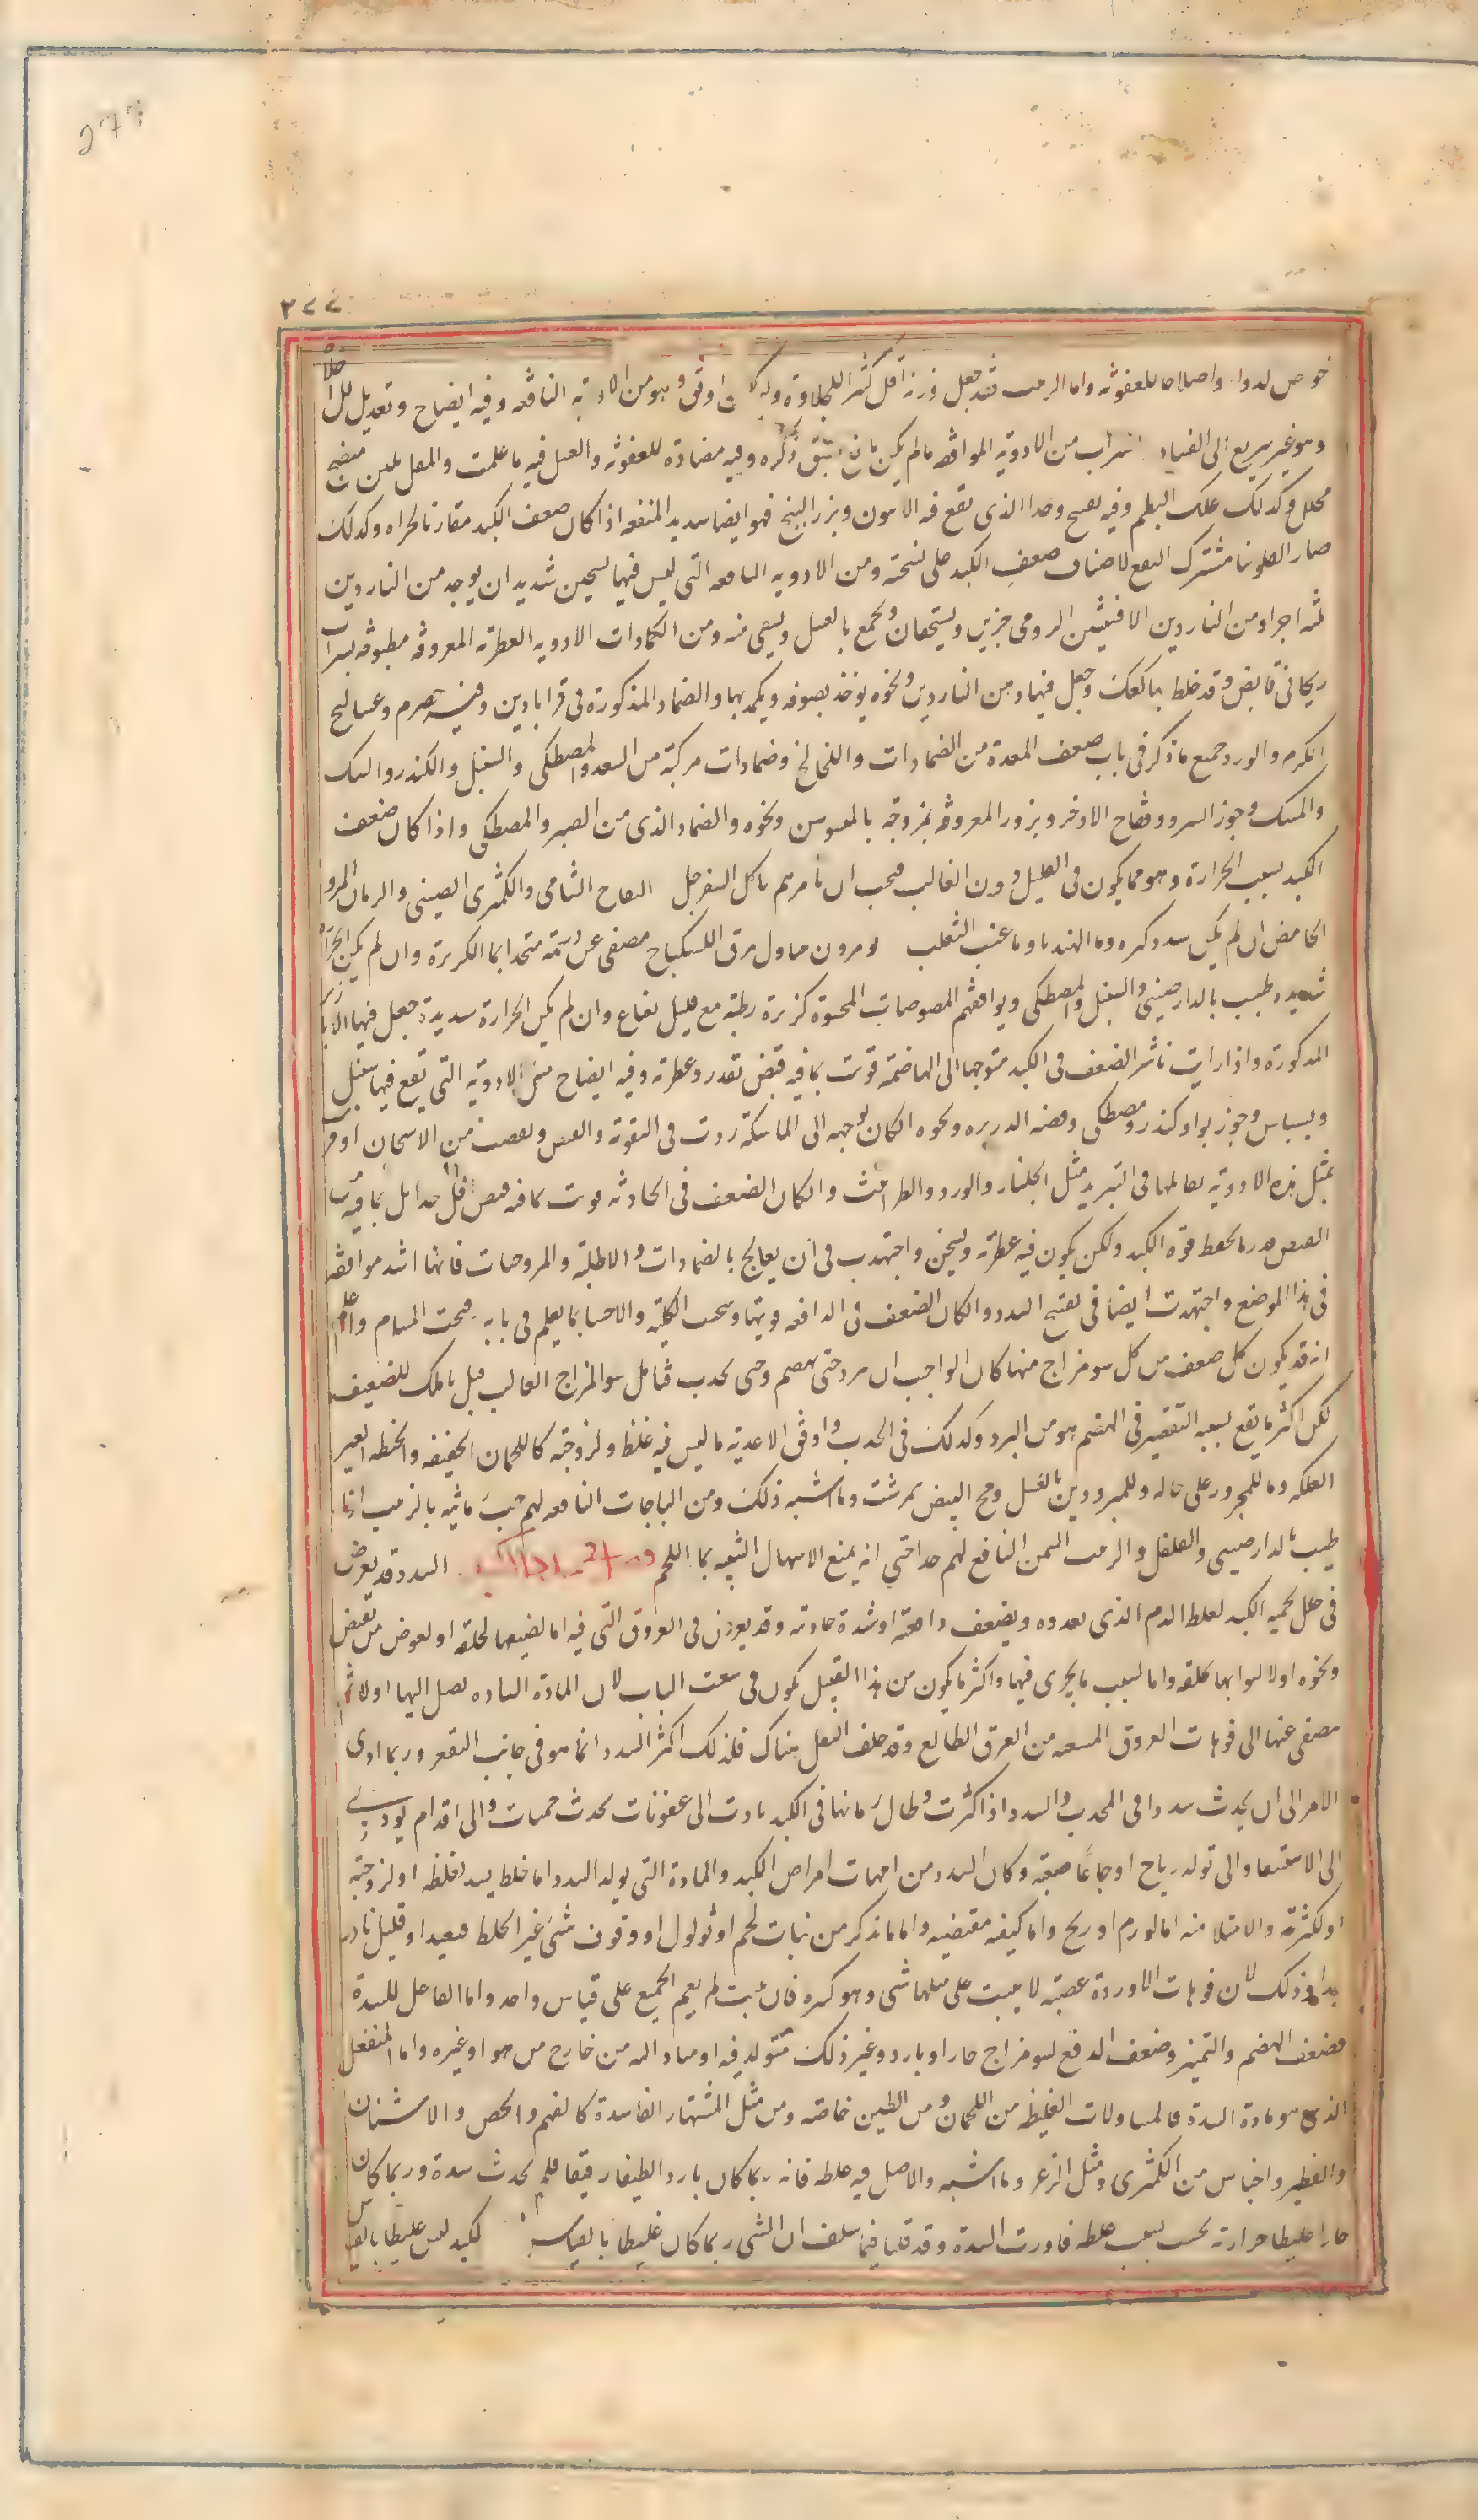 277
٢٧٧
خوص لدوا واصلاحا للعفوثه واما الزبيب فقد جعل وزنه اقل كثيرا للحلاوة وليكون اوفق وهو من الادوية النافعه وفيه ايضاح وتعديل للاخلاط
وهو غير سريع الى الفساد والشراب من الادويه الموافقه مالم يكن مانع سبق ذكره وفيه مضادة للعفونه والعسل فيه ما علمت والمقل ملين منضج
محلل وكذلك علك البطم وفيه تفتيح وهذا الذى تقع فيه الافيون وبزر البنج فهو ايضا شديد المنفعه اذا كان ضعف الكبد مقارنا لحراره وكذلك
صار الفلونيا مشترك النفع لاصناف ضعف الكبد على نسخته ومن الادويه النافعه التى ليس فيها تسخين شديد ان يوجد من الناردين
ثلثه اجزاء ومن الناردين الافسنتين الرومى جزيين ويسحقان ويجمع بالعسل ويسقى منه ومن الكمادات الادويه العطرته المعروفه مطبوخه بشراب
ريحانى قابض وقد خلط بها كعك وجعل فيها دهن الناردين ونحوه يوخذ بصوفه ويكمد بها والضماد المذكورة فى قراباذين وفيه حصرم وعساليج
الكرم والورد جميع ما ذكر فى باب ضعف المعدة من الضمادات واللخالخ وضمادات مركبة من السعد والمصطكى والسنبل والكندر والسك
والمسك وجوز السرو وفقاح الاذخر وبزور المعروفه ممزوجه بالميسوسن ونحوه والضماد الذى من الصبر والمصطكى واذا كان ضعف
الكبد بسبب الحرارة وهو مما يكون فى القليل دون الغالب فيجب ان نامرهم باكل السفرجل التفاح الشامى والكمثرى الصينى والرمان المر و
الحامض ان لم يكن سدد كثيره وما الهندبا وما عنب الثعلب يومرون تناول مرق السكباج مصفى عن دسمه متخذا بما الكزبرة وان لم يكن الحرارة
شديده طيب بالدارصينى والسنبل والمصطكى ويوافقهم المصوصات المحشوة كزبرة رطبه مع قليل نعناع وان لم يكن الحرارة شديدة جعل فيها الابازير
المذكورة واذا رايت تاثير الضعف فى الكبد متوجها الى الهاضمة قويت بما فيه قبض بقدر وعطرته وفيه ايضاح مثل الادويه التى تقع فيها سنبل
وبسباس وجوز بوا وكندر ومصطكى وقصب الذريره ونحوه ان كان توجه الى الماسكة زدت فى التقوته والقبض ونقصت من الاسخان او قر
بمثل هذه الادوية مقابلها فى التبريد مثل الجلنار والورد والطراثيث وان كان الضعف فى الجاذبه قويت بما فيه قبض اقل جدا بل بما فيه من
القبض قدر ما يحفظ قوة الكبد ولكن يكون فيه عطرته وتسخين واجتهدت فى ان يعالج بالضمادات والاطليه والمروخات فانها اشد موافقه
فى هذا الموضع واجتهدت ايضا فى تفتيح السدد وان كان الضعف فى الدافعه قويتها وسخنت الكليه والاحشا كما يعلم فى بابه وفتحت المسام واعلم
انه قد يكون كل ضعف من كل سو مزاج منها كان الواجب ان يبرد حتى يهضم وحتى يجذب فتامل سوالمزاج الغالب قبل تاملك للضعيف
لكن اكثر ما يقع بسببه التقصير فى الهضم هو من البرد وكذلك فى الجذب واوفق الاغذيه ما ليس فيه غلظ ولزوجته كاللحمان الخفيفه والحنطه الغير
العلكه وما للمحرور على حاله وللمبرودين بالعسل ومح البيض نمرشت وما اشبه ذلك ومن الباجات النافعه لهم حب رمانيه بالزبيب اذا
طيب بالدارصينى والفلفل والزبيب السمن النافع لهم جدا حتى انه يمنع الاسهال الشبيه بما اللحم السدد قد يعرض
فى خلل لحميه الكبد لغلظ الدم الذى يغذوه ويضعف دافعته او شدة جاذبته وقد يعرض فى العروق التى فيه اما لضيقها لخلقه او لعوض من تقبض
ونحوه او لالتوائها خلقه واما لسبب ما يجرى فيها واكثر ما يكون من هذا القبيل يكون فى شعب الباب لان المادة الساده تصل اليها اولا ثم
يصفى عنها الى فوهات العروق المتشعبه من العرق الطالع وقد خلف الثفل هناك فلذلك اكثر السدد انما هو فى جانب التقعر وربما ادى
الامر الى ان يحدث سددا فى المحدب والسدد اذا كثرت وطال زمانها فى الكبد تادت الى عفونات يحدث حميات والى اقدام يودى
الى الاستسقا والى تولد رياح اوجاعا صعبة وكان السدد من امهات امراض الكبد والمادة التى يولد السدد اما خلط يسد لغلظه او لزوجته
او لكثرته والامتلا منه اما لورم او ريح واما كيفيه مقبضيه واما ما نذكر من نبات لحم او ثولول او وقوف شئ غير الخلط فبعيد او قليل نادر
جدا فذلك لان فوهات الاوردة عصبيه لا ينبت على مثلها شى وهو كثيره فان نبت لم يعم الجميع على قياس واحد واما الفاعل للسدة
فضعف الهضم والتميز وضعف الدفع لسو مزاج حار او بارد وغير ذلك متولد فيه او متاد اليه من خارج من هوا وغيره واما المنفعل
الذى هو مادة السدة فالمتناولات الغليظه من اللحمان ومن الطين خاصه ومن مثل المشتهاة الفاسدة كالفحم والجص والاشنان
والفطير واجناس من الكمثرى ومثل الزعر وما اشبه والاصل فيه غلظه فانه ربما كان بارد الطيفا رقيقا فلم يحدث سدة وربما كان
حارا غليظا حرارته يحسب بسبب غلظه فاورث السدة وقد قلنا فيما سلف ان الشى ربما كان غليظا بالقياس لكبد ليس غليظا بالقياس